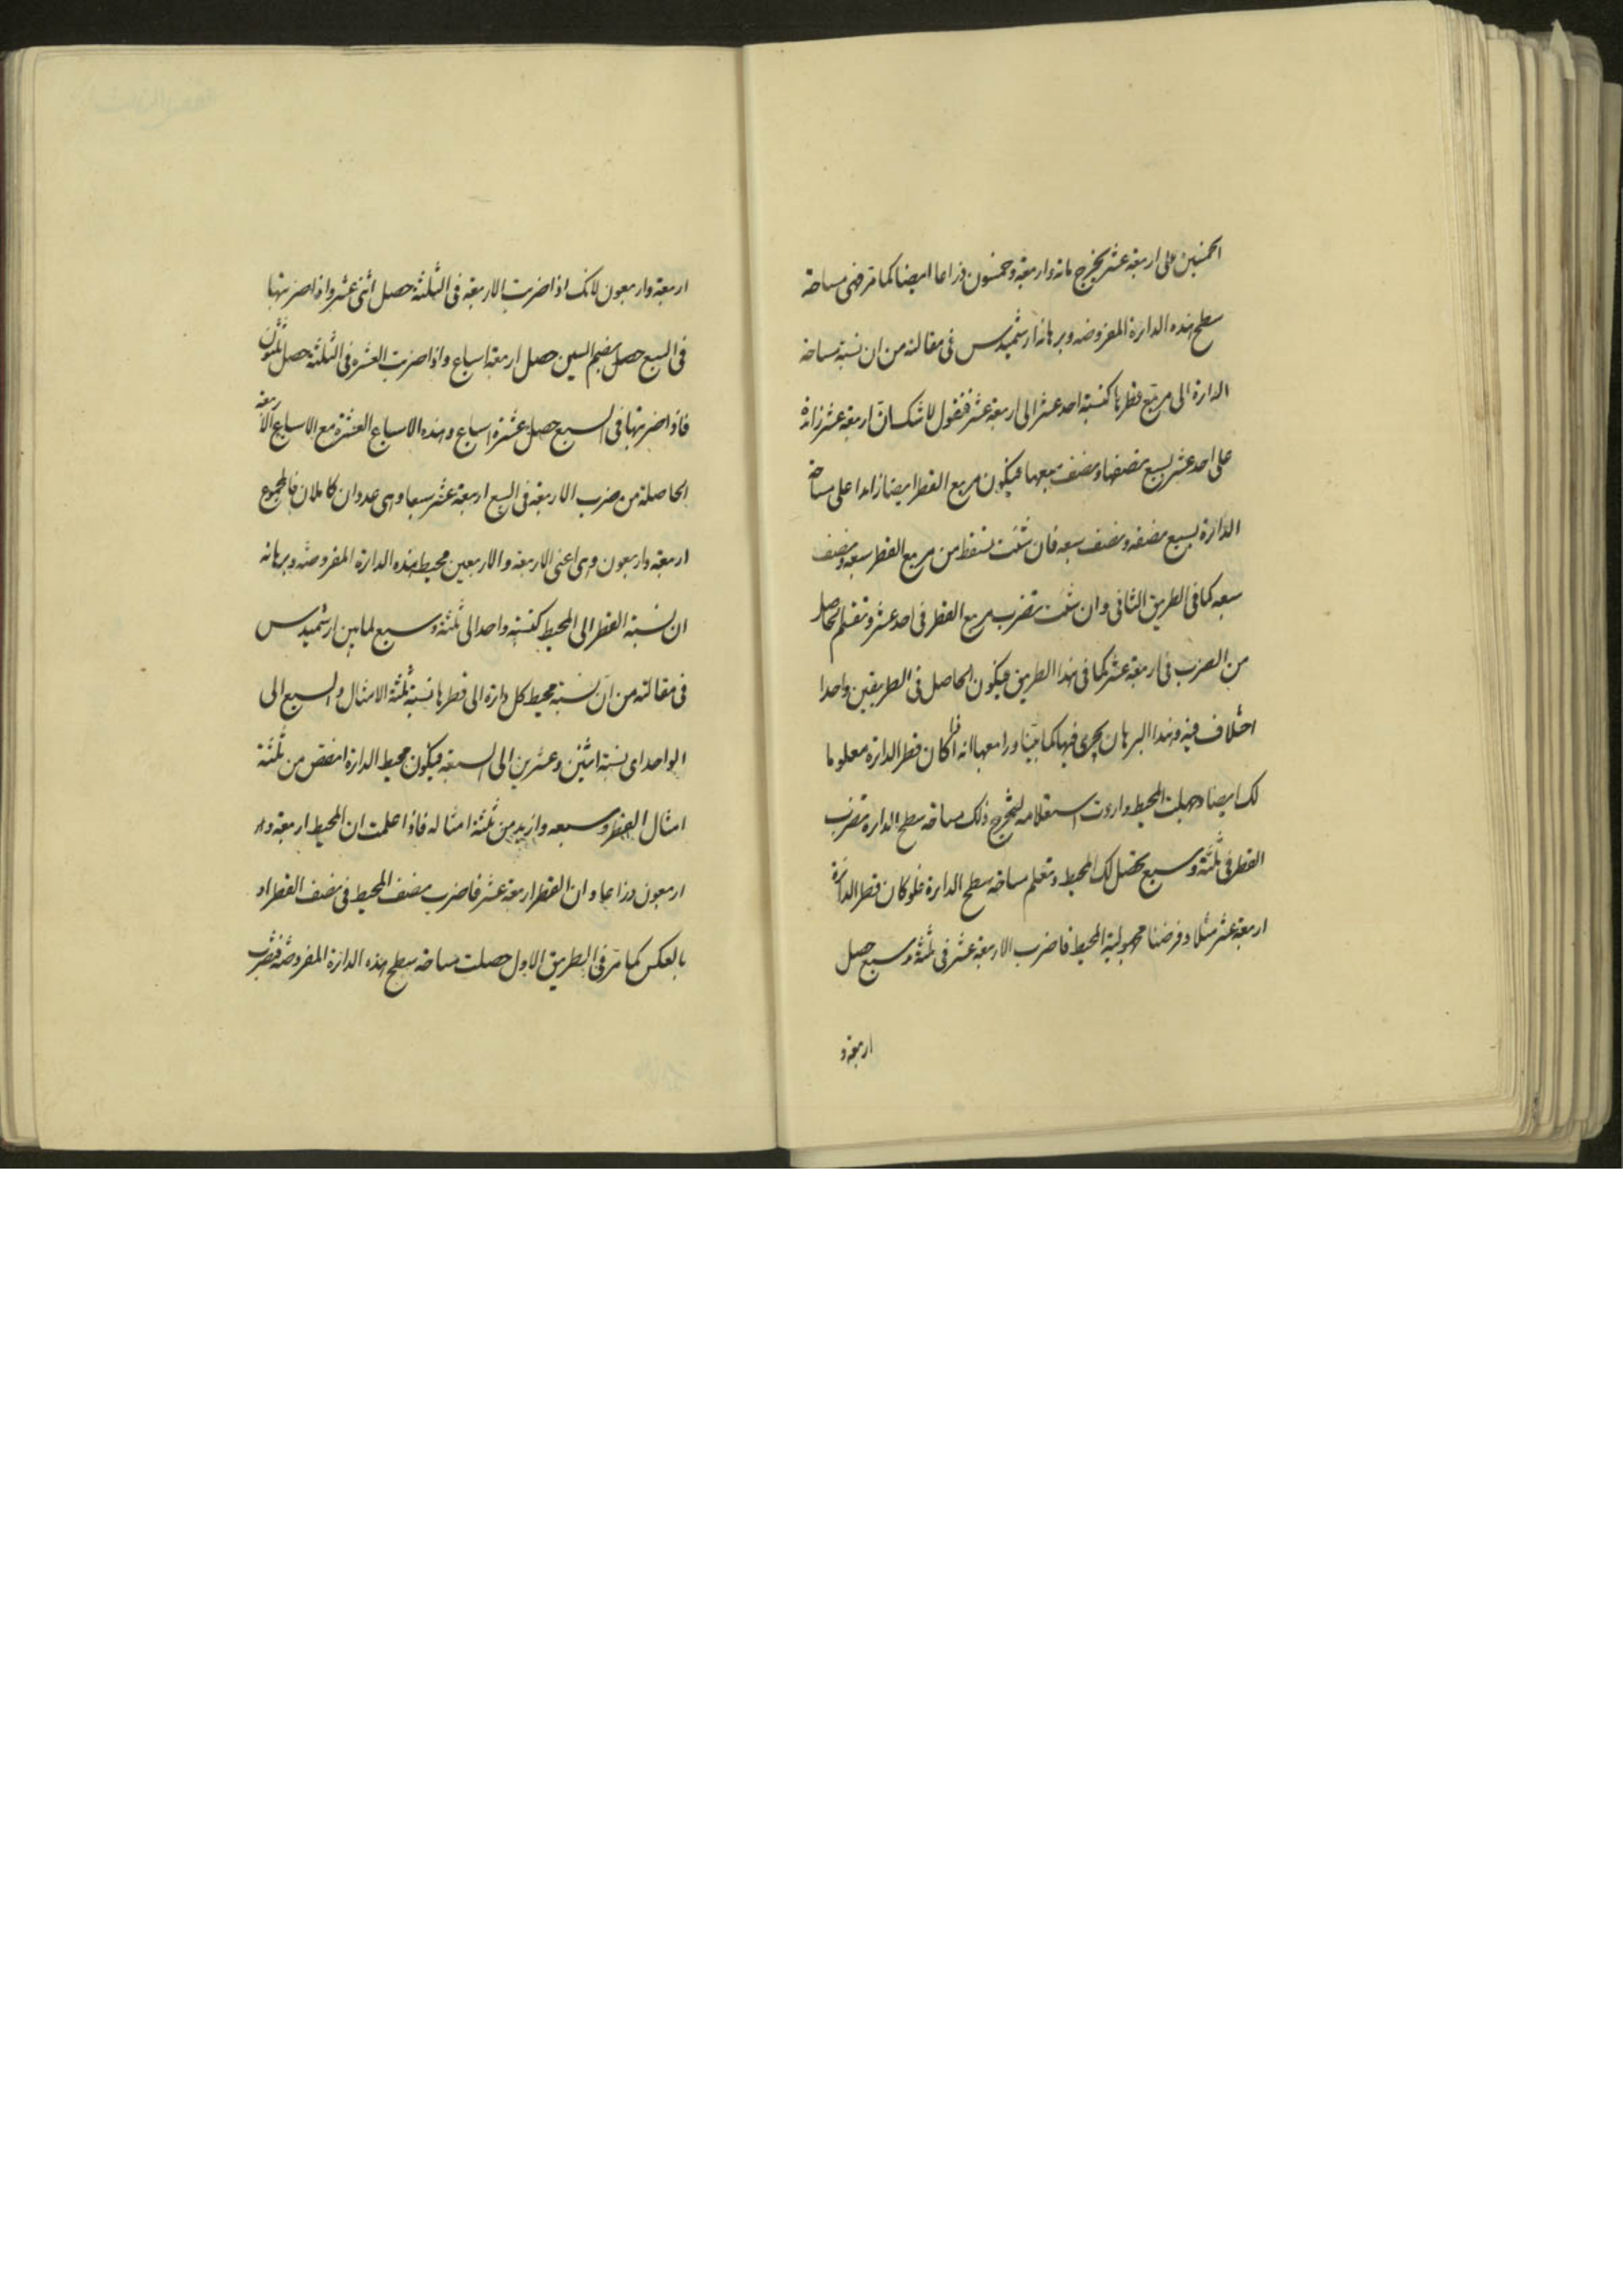 الخمسين على اربعة عشر يخرج مائة واربعة وخمسون ذراعا ايضا كما مر فهى مساحة
سطح هذه الدائرة المفروضة وبرهانه ارشميدس فى مقالته من ان نسبة مساحة
الدائرة الى مربع قطرها كنسبة احد عشر الى اربعة عشر فنقول لا شك ان اربعة عشر زائدة
على احد عشر بسبع نصفها ونصف سبعها فيكون مربع القطر ايضا زائدا على مساحة
الدائرة بسبع نصفه ونصف سبعه فان شئت تسقط من مربع القطر سبعه ونصف
سبعه كما فى الطريق الثانى وان شئت تضرب مربع القطر فى احد عشر وتقسم الحاصل
من الضرب فى اربعة عشر كما فى هذا الطريق فيكون الحاصل فى الطريقين واحدا
اختلاف فيه وهذا البرهان يجرى فيها كما بينا انه اذا كان قطر الدائرة معلوما
لك ايضا وجهلت المحيط واردت استعلامه ليخرج ذلك مساحة سطح الدائرة تضرب
القطر فى ثلثة وسبع يحصل لك المحيط وتعلم مساحة سطح الدائرة فلو كان قطر الدائرة
اربعة عشر مثلا وفرضنا مجهولية المحيط فاضرب الاربعة عشر فى ثلثة وسبع حصل
اربعة و
اربعة واربعون لانك اذا ضربت الاربعة فى الثلثة حصل اثنى عشر واذا ضربتها
فى السبع بضم السين حصل اربعة اسباع واذا ضربت العشرة فى الثلثة حصل ثلثون
فاذا ضربتها فى السبع حصل عشرة اسباع وهذه الاسباع العشرة مع الاسباع الاربعة
الحاصلة من ضرب الاربعة فى السبع اربعة عشر سبعا وهى عددان كاملان فالمجموع
اربعة واربعون وهى اعنى الاربعة والاربعين محيط هذه الدائرة المفروضة وبرهانه
ان نسبة القطر الى المحيط كنسبة واحد الى ثلثة وسبع لما بين ارشميدس
فى مقالته من ان نسبة محيط كل دائرة الى قطرها نسبة ثلثة الامثال والسبع الى
الواحد اى نسبة اثنين وعشرين الى السبعة فيكون محيط الدائرة انقص من ثلثة
امثال القطر وسبعه وازيد من ثلثة امثاله فاذا علمت ان المحيط اربعة و
اربعون ذراعا وان القطر اربعة عشر فاضرب نصف المحيط فى نصف القطر او
بالعكس كما مر فى الطريق الاول حصلت مساحة سطح هذه الدائرة المفروضة فضرب